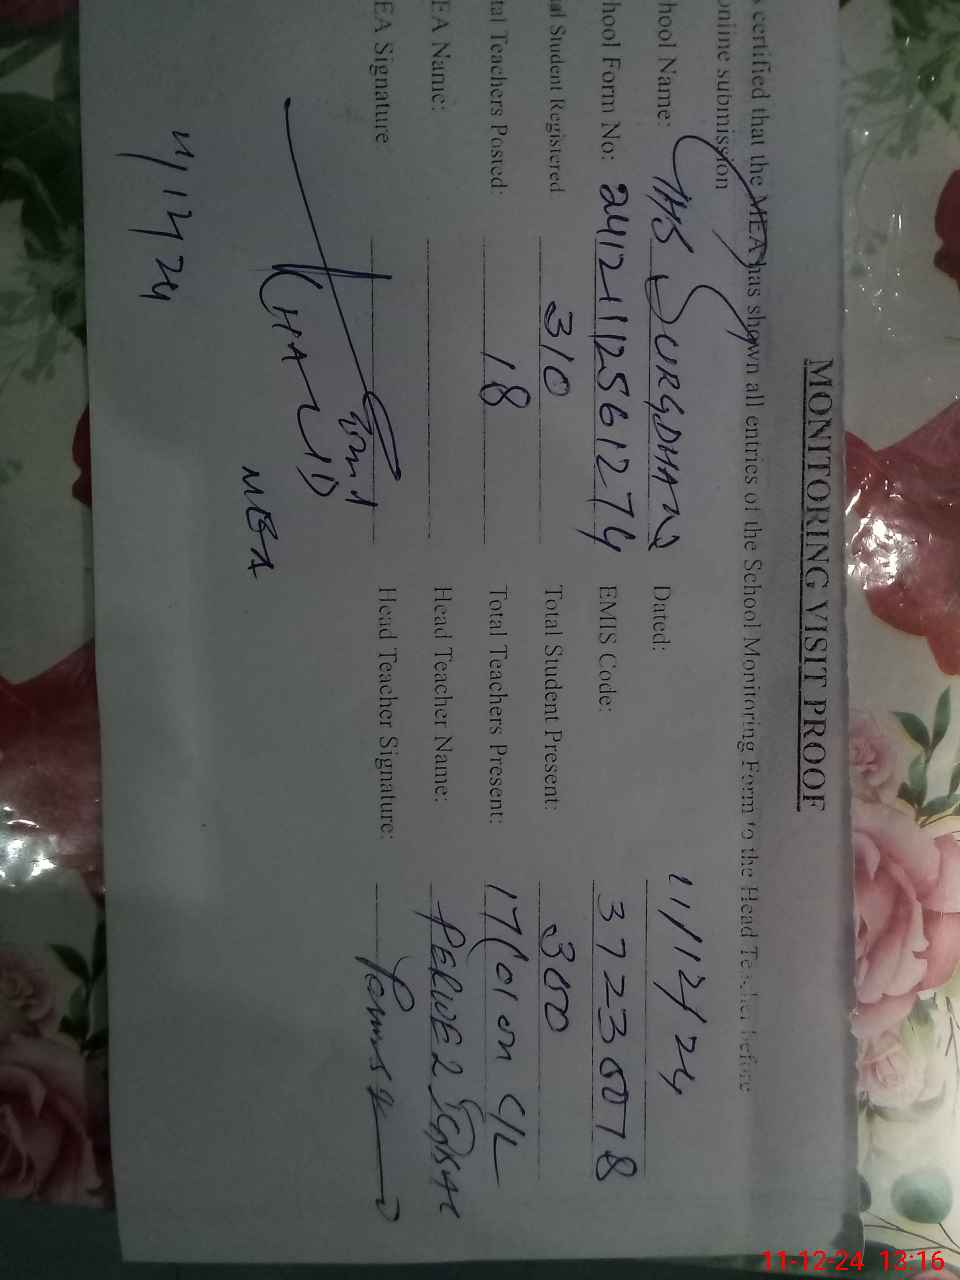 MONITORING VISIT PROOF
certified that the MEA has shown all entries of the School Monitoring Form to the Head Teacher before
online submission
hool Name: GHS SURGDHAN Dated: 11/12/24
hool Form No: 24121112561274 EMIS Code: 37230078
al Student Registered 310 Total Student Present: 300
tal Teachers Posted: 18 Total Teachers Present: 17(01 on C/L
EA Name: Head Teacher Name: PERWEZ IQBAL
EA Signature Head Teacher Signature:
KHALID
MEA
11/12/24
11-12-24 13:16